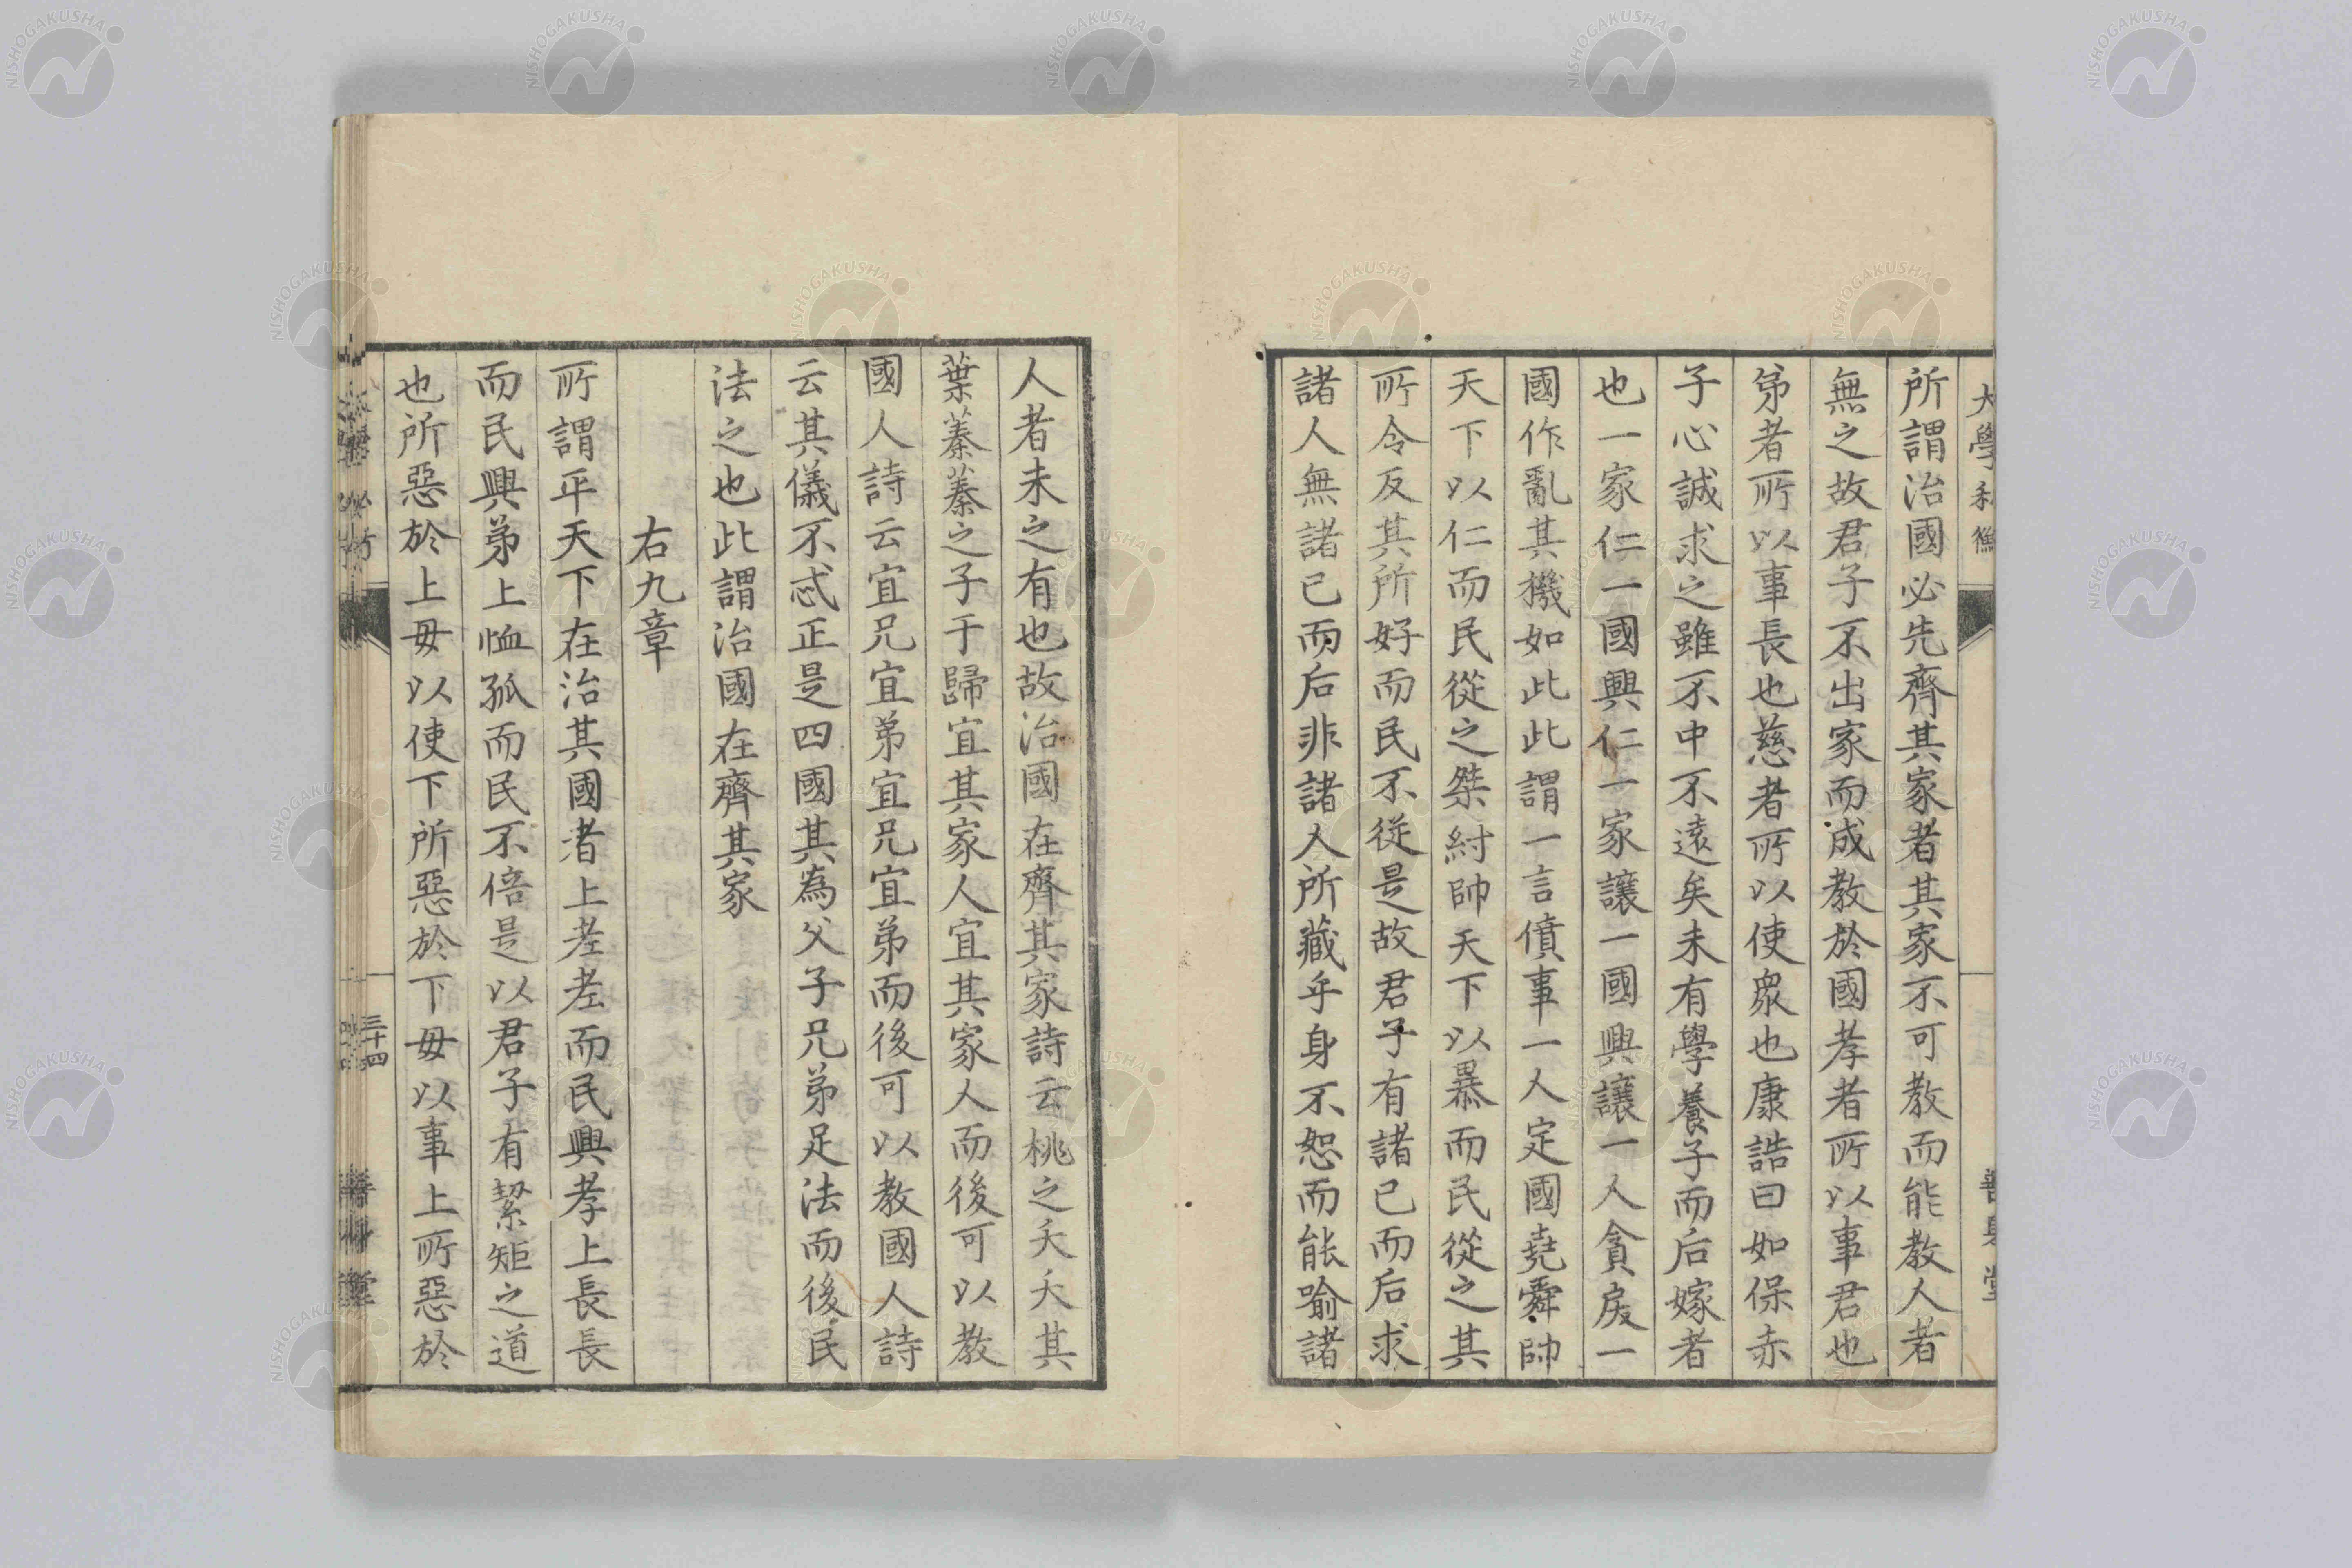 所謂治國必先齊其家者其家不可教而能教人者
無之故君子不出家而成教於國孝者所以事君也
弟者所以事長也慈者所以使眾也康誥曰如保赤
子心誠求之雖不中不遠矣未有學養子而后嫁者
也一家仁一國興仁一家讓一國興讓一人貪戾一
國作亂其機如此此謂一言僨事一人定國堯舜帥
天下以仁而民從之桀紂帥天下以暴而民從之其
所令反其所好而民不從是故君子有諸己而后求
諸人無諸己而后非諸人所藏乎身不恕而能喻諸
人者未之有也故治國在齊其家詩云桃之夭夭其
葉蓁蓁之子于歸宜其家人宜其家人而後可以教
國人詩云宜兄宜弟宜兄宜弟而後可以教國人詩
云其儀不忒正是四國其為父子兄弟足法而後民
法之也此謂治國在齊其家
右九章
所謂平天下在治其國者上老老而民興孝上長長
而民興弟上恤孤而民不倍是以君子有絜矩之道
也所惡於上毋以使下所惡於下毋以事上所惡於
三十四
NISHOGAKUSHA